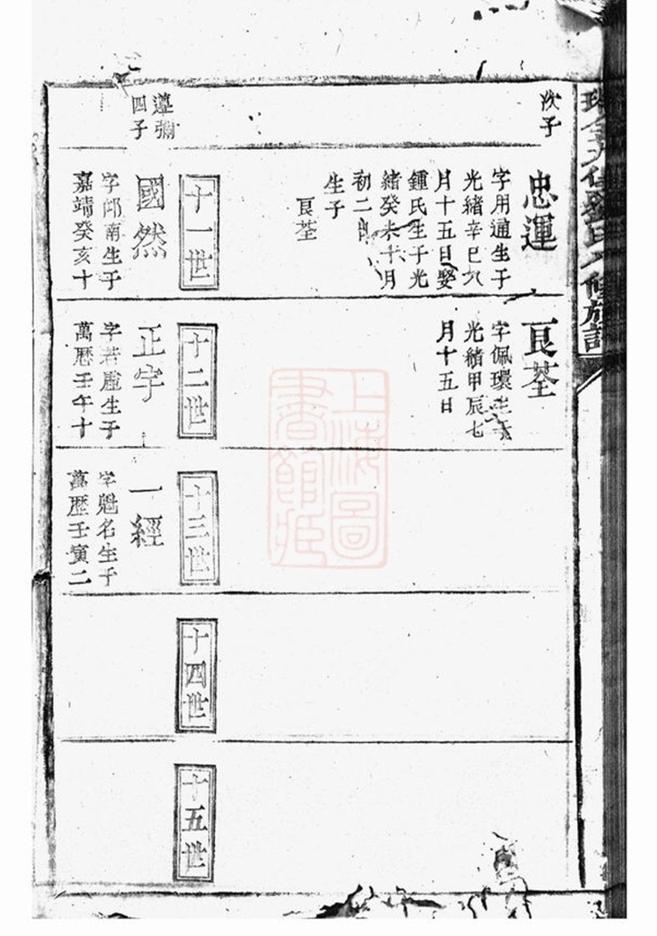 次子
忠運
字用通生于
光緒辛巳六
月十五日娶
鍾氏生子光
緒癸未十月
初二
生子
艮荃
艮荃
字佩環生于
光緒甲辰七
月十五日
遵彌
四子
十一世
國然
字邱南生于
嘉靖癸亥十
十二世
正宇
字若廬生于
萬歷壬午十
十三世
一經
字魁名生于
萬歷壬寅二
十四世
十五世
上海圖
書館藏